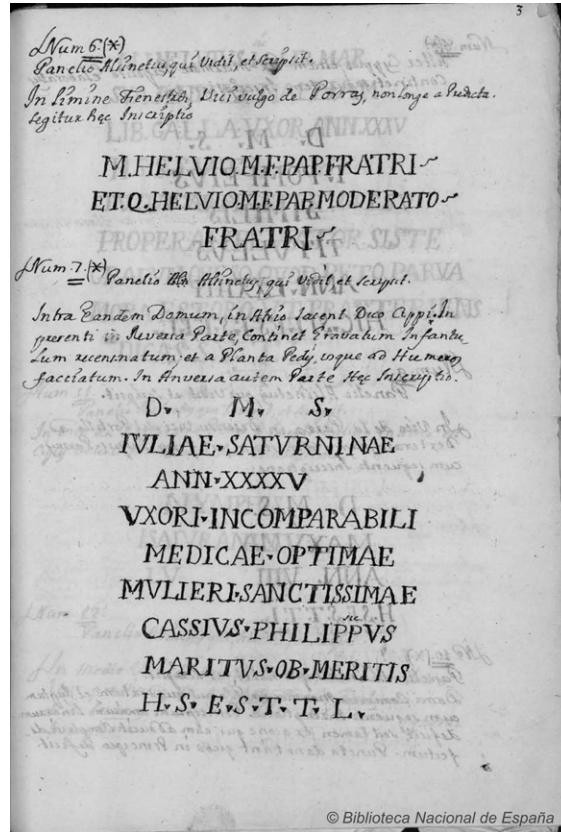 3
Num 6. (*)
Panelio Alsinetus, qui Vidit, et scripsit.
In Limine Fenestræ, Vici vulgo de Porras, non longe a Prædicta.
Legitur hęc Inscriptio
M.HELVIO.M.F.PAP.FRATRI
ET.Q.HELVIO.M.F.PAP.MODERATO
FRATRI.
Num. 7. (*) Panelio Alsinetus, qui Vidit, et scripsit.
Intra Eandem Domum, in Atrio Iacent Duo Cippi. In
presenti in Reversa Parte, Continet Gravatum Infantu-
lum recensnatum; et a Planta Pedis, usque ad Humeros
fasciatum. In Anversa autem Parte Hęc Inscriptio.
D. M. S.
IVLIAE.SATVRNINAE
ANN.XXXXV
VXORI.INCOMPARABILI
MEDICAE.OPTIMAE
MVLIERI.SANCTISSIMAE
sic
CASSIVS.PHILIPPVS
MARITVS.OB.MERITIS
H. S. E. S. T. T. L.
© Biblioteca Nacional de España